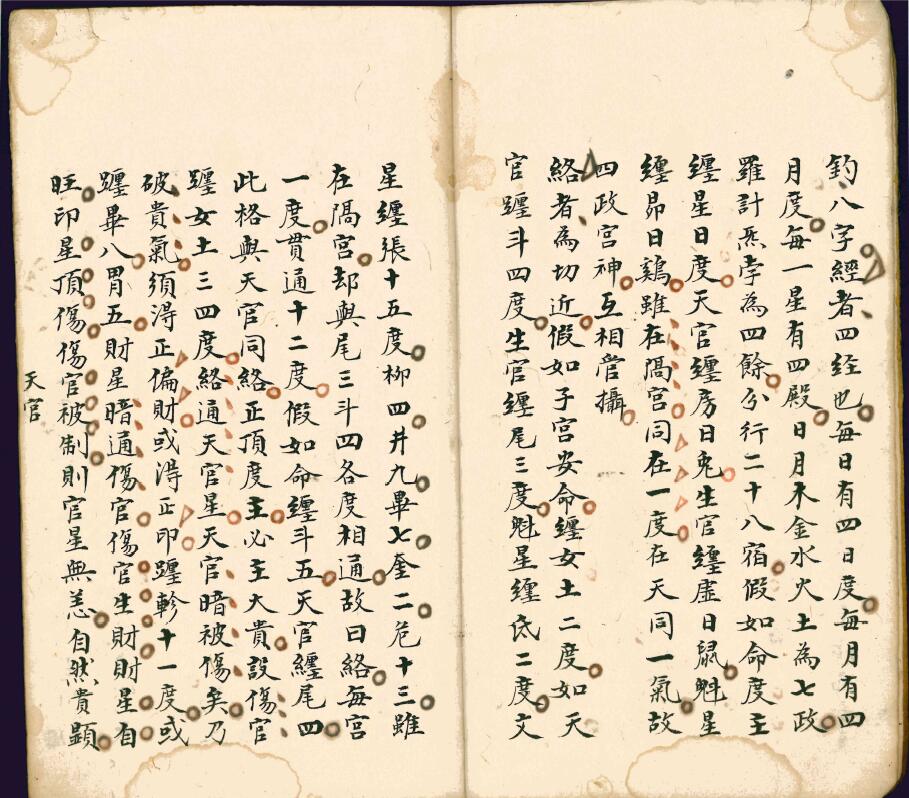 釣八字經者四经也每日有四日度每月有四
月度每一星有四殿日月木金水火土為七政
羅計炁孛為四餘分行二十八宿假如命度主
纏星日度天官纏房日兎生官纏虛日鼠魁星
纏昴日鷄雖在隔宫同在一度在天同一氣故
四政宫神互相管攝
絡者為切近假如子宫安命纏女土二度如天
官躔斗四度生官纏尾三度魁星纏氐二度文
星纏張十五度柳四井九畢七奎二危十三雖
在隔宫却與尾三斗四各度相通故曰絡每宫
一度贯通十二度假如命纏斗五天官纏尾四
此格與天官同絡正頂度主必主大貴設傷官
躔女土三四度絡通天官星天官暗被傷矣乃
破貴氣須淂正偏財或淂正印躔軫十一度或
躔畢八胃五財星暗通傷官傷官生財財星自
旺印星頂傷傷官被制則官星無恙自然貴顕
天官